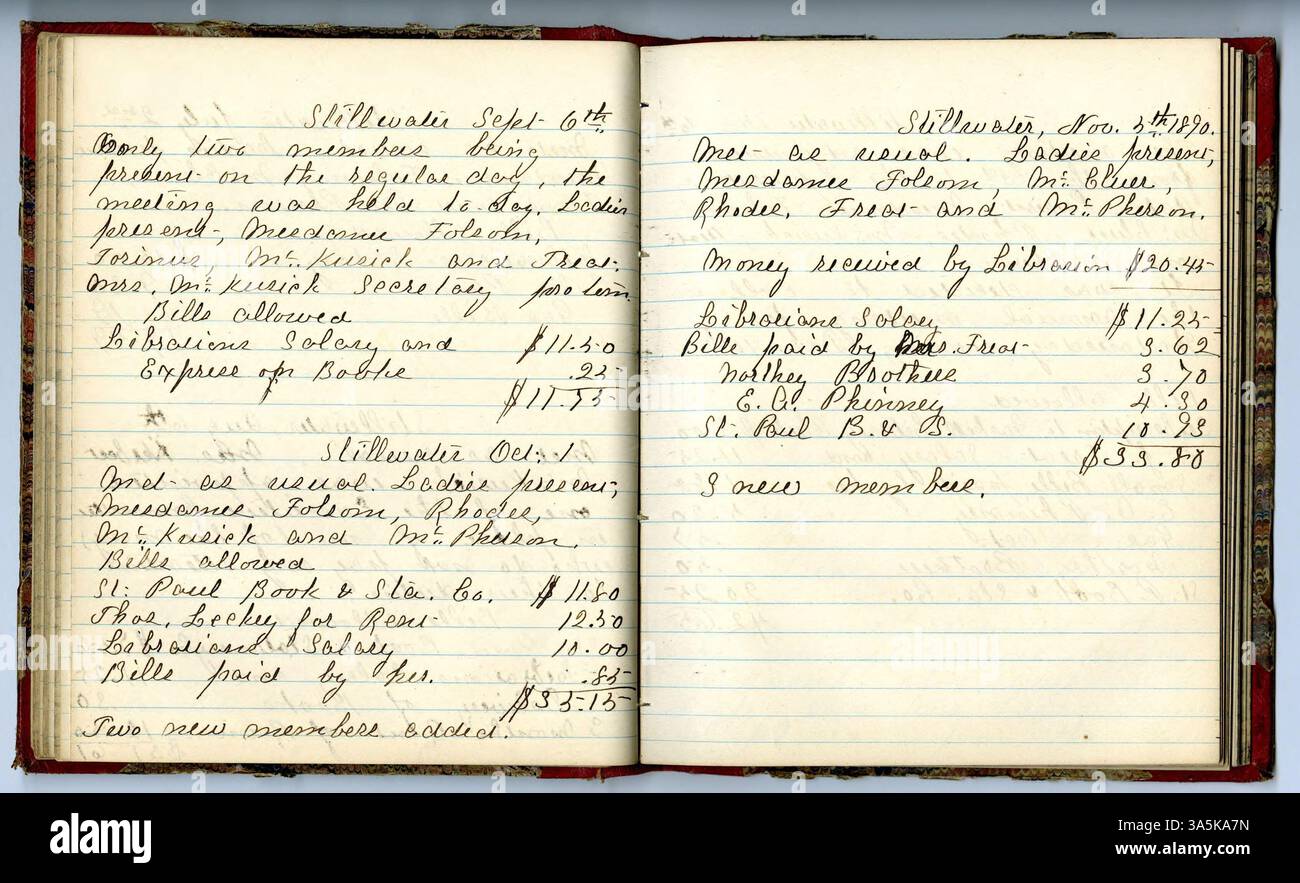 Stillwater Sept 6th
only two members being
present on the regular day, the
meeting was held to-day. Ladies
present, Mesdames Folsom,
Torinus, McKusick and Treat.
Mrs. McKusick Secretary protem.
Bills allowed
Librarians Salary and $11.50
Express on Books .25
$11.75
Stillwater Oct. 1
Met as usual. Ladies present,
Mesdames Folsom, Rhodes,
McKusick and McPherson.
Bills allowed
St. Paul Book & Sta. Co. $11.80
Thos. Leckey for Rent 12.50
Librarians Salary 10.00
Bills paid by her. .85
$35.15
Two new members added.
Stillwater, Nov. 5th 1890.
Met as usual. Ladies present,
Mesdames Folsom, McCluer,
Rhodes, Treat and McPherson.
Money received by Librarian $20.45
Librarians Salary $11.25
Bills paid by Mrs. Treat 3.62
Northey Brothers 3.70
E. A. Phinney 4.30
St. Paul B. & S. 10.93
$33.80
3 new members.
alamy
Image ID: 3A5KA7N
www.alamy.com